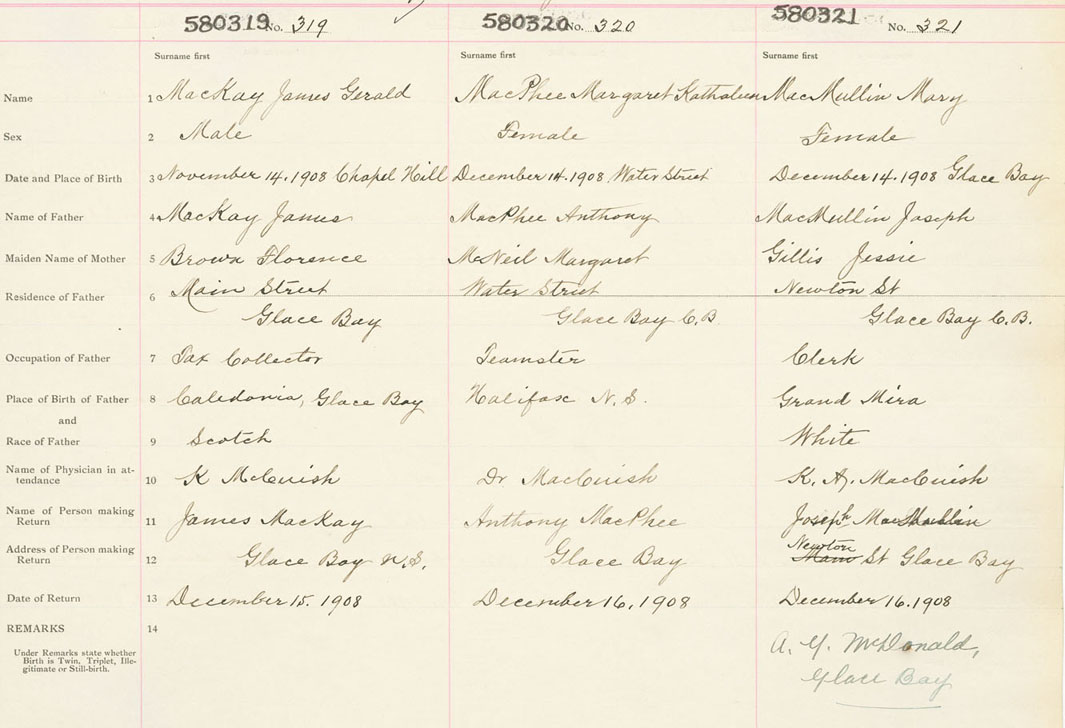 580319 No. 319 580320 No. 320 580321 No. 321
Surname first Surname first Surname first
Name 1 MacKay James Gerald MacPhee Margaret Kathaleen MacMullin Mary
Sex 2 Male Female Female
Date and Place of Birth 3 November 14. 1908 Chapel Hill December 14. 1908 Water Street December 14. 1908 Glace Bay
Name of Father 4 MacKay James MacPhee Anthony MacMullin Joseph
Maiden Name of Mother 5 Brown Florence McNeil Margaret Gillis Jessie
Residence of Father 6 Main Street Water Street Newton St
Glace Bay Glace Bay C.B. Glace Bay C.B.
Occupation of Father 7 Tax Collector Teamster Clerk
Place of Birth of Father 8 Caledonia, Glace Bay Halifax N.S. Grand Mira
and
Race of Father 9 Scotch White
Name of Physician in at-
tendance 10 K McCuish Dr MacCuish K. A. MacCuish
Name of Person making
Return 11 James MacKay Anthony MacPhee Joseph MacMullin
Address of Person making Newton
Return 12 Glace Bay N.S. Glace Bay Main St Glace Bay
Date of Return 13 December 15. 1908 December 16, 1908 December 16. 1908
REMARKS 14
Under Remarks state whether
Birth is Twin, Triplet, Ille-
gitimate or Still-birth.
A. Y. McDonald,
Glace Bay